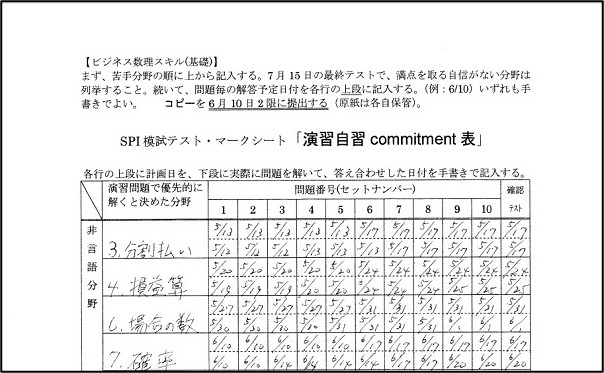 【ビジネス数理スキル(基礎)】
まず、苦手分野の順に上から記入する。7月15日の最終テストで、満点を取る自信がない分野は
列挙すること。続いて、問題毎の解答予定日付を各行の上段に記入する。(例:6/10) いずれも手
書きでよい。 コピーを6月10日2限に提出する（原紙は各自保管）。
SPI 模試テスト・マークシート「演習自習 commitment 表」
各行の上段に計画日を、下段に実際に問題を解いて、答え合わせした日付を手書きで記入する。
演習問題で優先的に解くと決めた分野 問題番号(セットナンバー) 確認テスト
1 2 3 4 5 6 7 8 9 10
非言語分野
3. 分割払い
5/13 5/13 5/13 5/13 5/13 5/17 5/17 5/17 5/17 5/17 5/17
5/12 5/12 5/12 5/13 5/13 5/13 5/17 5/17 5/17 5/17 5/17
4. 損益算
5/20 5/20 5/20 5/20 5/20 5/24 5/24 5/24 5/24 5/24 5/24
5/19 5/19 5/19 5/20 5/20 5/24 5/24 5/24 5/25 5/25 5/25
6. 場合の数
5/27 5/27 5/27 5/27 5/27 5/31 5/31 5/31 5/31 5/31 5/31
5/30 5/30 5/30 5/30 5/31 5/31 5/31 5/31
7. 確率
6/10 6/10 6/10 6/10 6/10 6/17 6/17 6/17 6/17 6/17 6/17
6/10 6/10 6/14 6/14 6/14 6/17 6/17 6/20 6/20 6/20